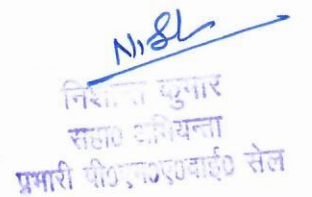 Nish
निशान्त कुमार
सहा० अभियन्ता
प्रभारी पी०एम०ए०वाई० सेल